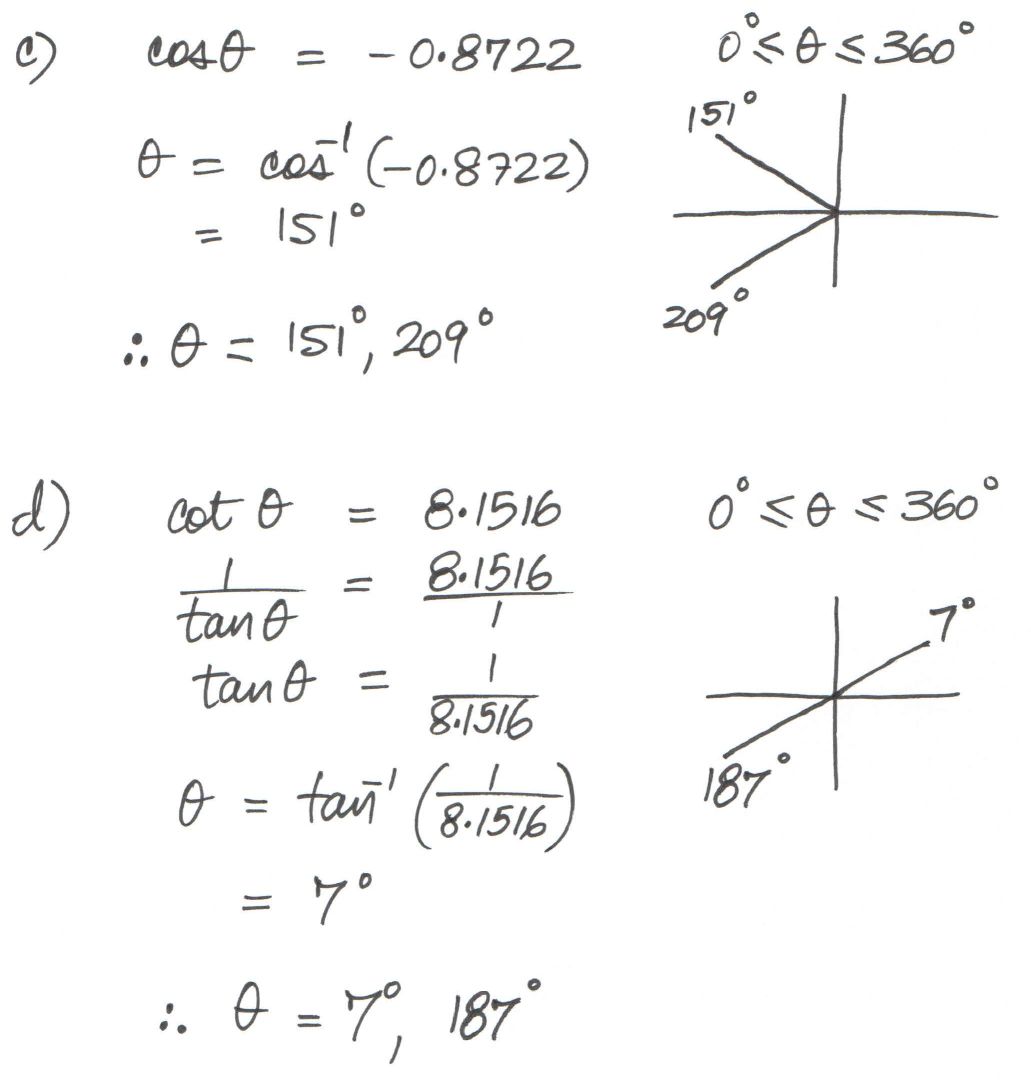 c) cosθ = -0.8722 0° ≤ θ ≤ 360°
151°
θ = cos⁻¹(-0.8722)
= 151°
209°
∴ θ = 151°, 209°
d) cot θ = 8.1516 0° ≤ θ ≤ 360°
1/tanθ = 8.1516/1
7°
tanθ = 1/8.1516
187°
θ = tan⁻¹(1/8.1516)
= 7°
∴ θ = 7°, 187°